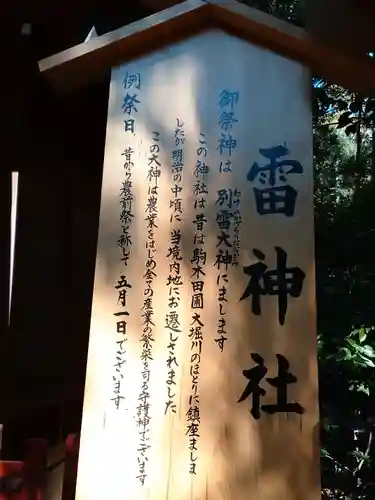 雷神社
御祭神は 別雷大神にまします
わけいかづちのおおかみ
この神社は 昔は駒木田圃大堀川のほとりに鎮座ましま
したが明治の中頃に 当境内地にお遷しされました
この大神は農業をはじめ全ての産業の繁栄を司る守護神でございます
例祭日 昔から農前祭と称して 五月一日でございます